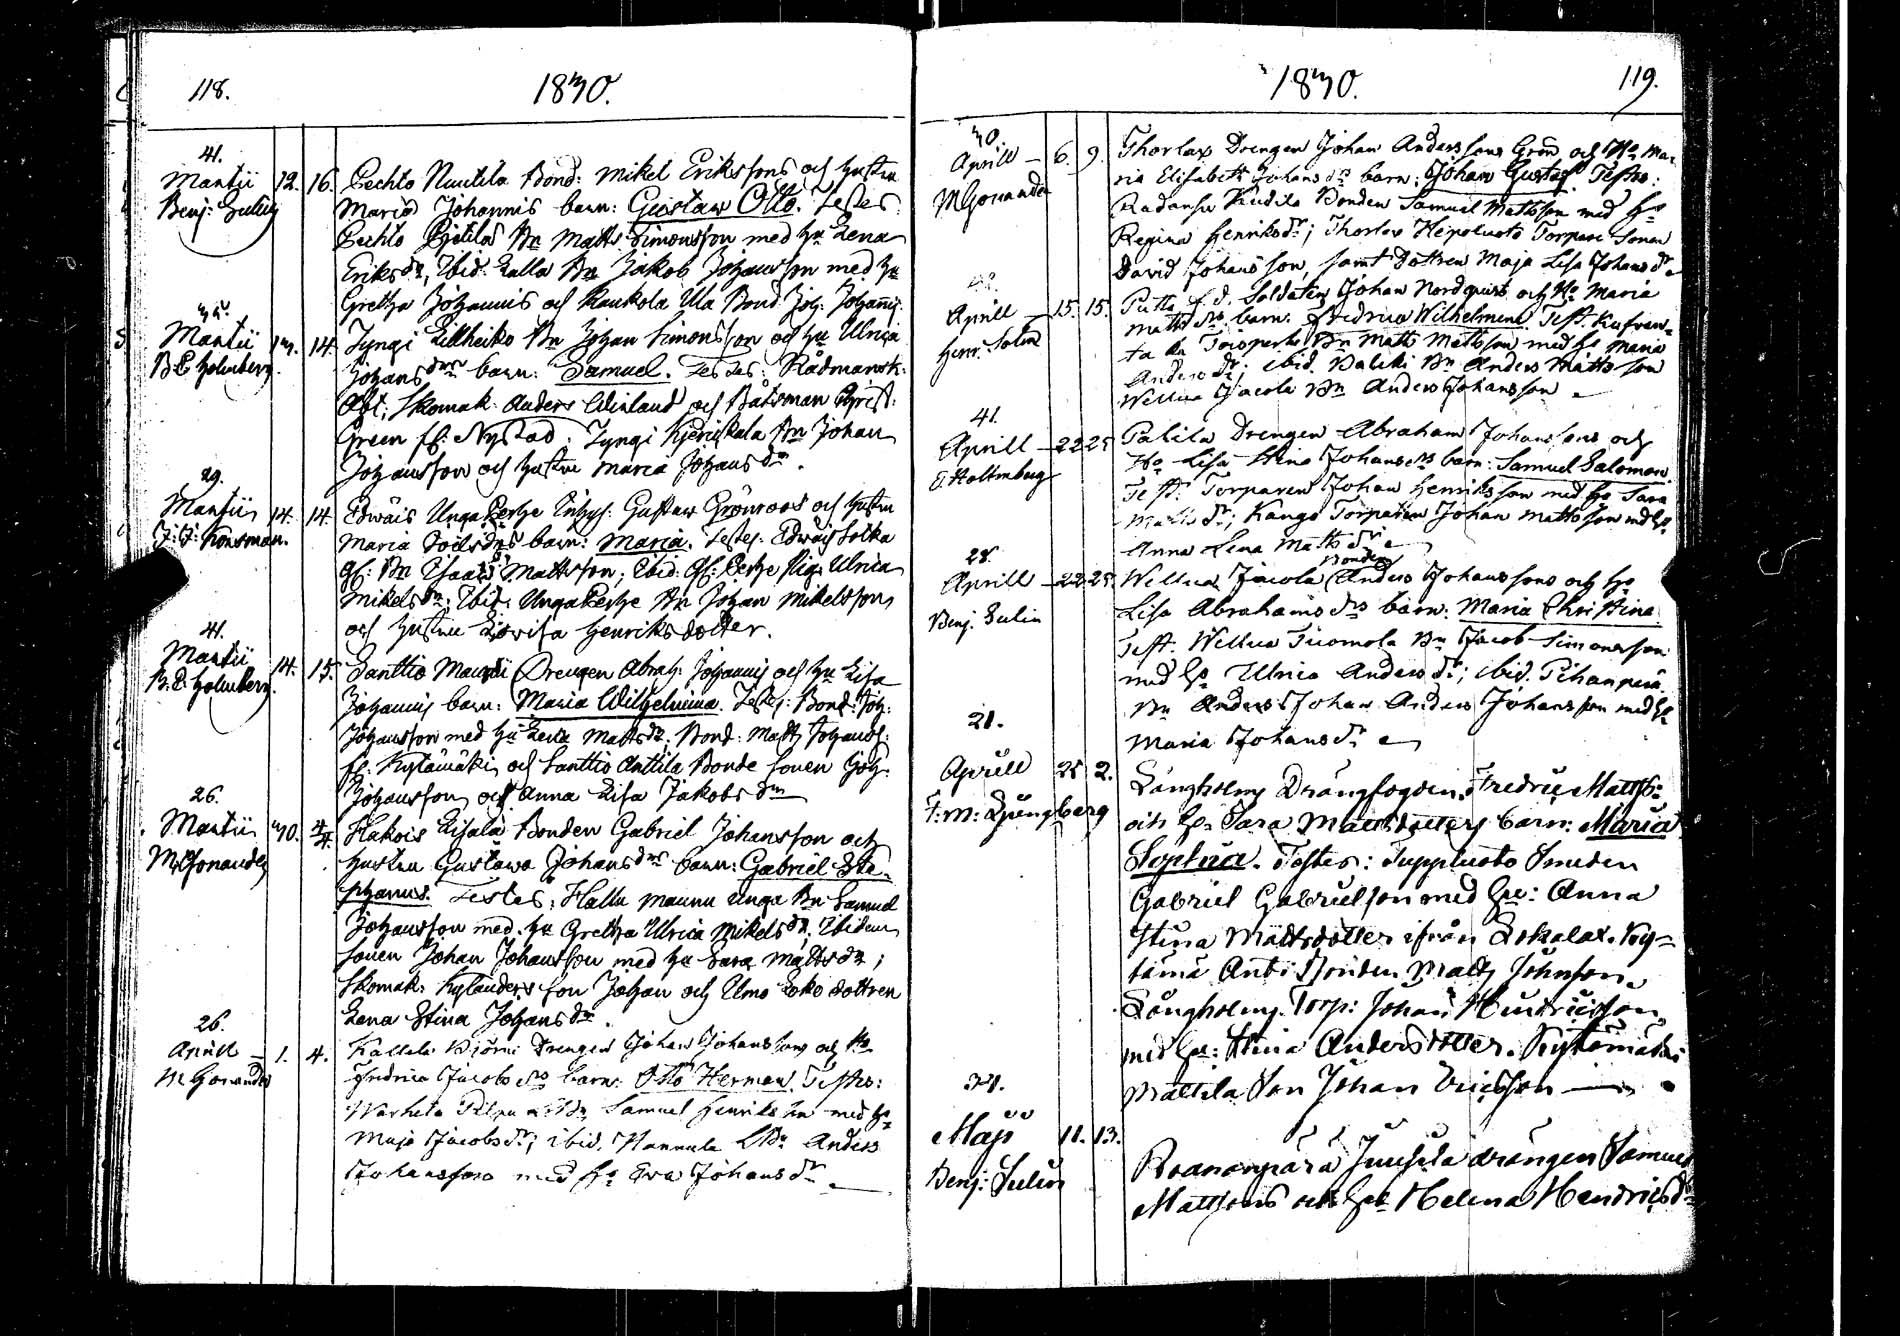 118.
1830.
41.
Martii 12. 16. Pechto Nuutila Bond: Mikel Erikssons och hustru
Benj: Sulin Maria Johannis barn: Gustaw Otto. Testes:
Pechto Pietilä Bn Matts Simonsson med hu Lena
Eriksdr, Ibid. Lalla Bn Jakob Johansson med hu
Gretha Johannis och Kaukola Ula Bond Joh: Johannis.
Martii 13. 14. Jyngi Lillheiko Bn Johan Simonsson och hu Ulrica
B.E. Holmberg. Johansdrs barn: Samuel. Testes: Rådmansk:
Abt, Skomak: Anders Winland och Båtsman Christ:
Green fr: Nystad. Jyngi Kjeriskala Bn Johan
Johansson och hustru Maria Johansdr.
29.
Martii 14. 14. Edwäis Unga Perhe Inhys: Gustaw Grönroos och hustru
J: J: Konsman. Maria barn: Maria. Testes: Edwäis Sokka
gl: Bn Isaac Mattsson; Ibid: gl: Perhe Pig: Ulrica
Mikelsdr: Ibid: Unga Perhe Bn Johan Mikelsson
och hustru Lovisa Henriksdotter.
41.
Martii 14. 15. Santtio Maunu Drengen Abrah: Johannis och hu Lisa
B.E. Holmberg. Johannis barn: Maria Wilhelmina. Testes: Bond: Joh:
Johansson med hu Lena Mattsdr, Bond: Matts Johans:
fr: Kytämäki och Santtio Anttila Bonde sonen Joh:
Johansson och Anna Lisa Jakobsdr
26.
Martii 30. Hakois Eisala Bonden Gabriel Johansson och
M. Gonander hustru Gustawa Johansdrs barn: Gabriel Ste-
phanus. Testes: Hallu Maunu Unga Bn Samuel
Johansson med hu Gretha Ulrica Mikelsdr, Ibidem
sonen Johan Johansson med hu Sara Mattsdr;
Skomak: Kylanders son Johan och Elmo Eeko dottren
Lena Stina Johansdr.
26.
Aprill 1. 4. Kallela Björni Drengen Johan Johanssons och Ho
M. Gonander Fredrica Jacobsdrs barn: Otto Herman. Testes:
Warhela Pilpu Bn Samuel Henriksson med ho
Maja Jacobsdr; ibid. Hannula LBn Anders
Johansson med ho Eva Johansdr
1830.
119.
30.
Aprill 6. 9. Thorlax Drengen Johan Anderssons Grön och Ho Ma-
M Gonander ria Elisabeth Johansdrs barn: Johan Gustaf. Testes:
Radansu Knutila Bonden Samuel Mattsson med ho
Regina Henriksdr; Thorlax Hepoluoto Torpare Sonen
David Johansson, samt Dottren Maja Lisa Johansdr
Aprill 15. 15. f.d. Soldaten Johan Nordquist och Ho Maria
Henr: Solin Mattsdrs barn: Fredrica Wilhelmina. Test.
Bn Matts Mattsson med ho Maria
Andersdr; ibid. Bn Anders Mattsson
Wellua Jacola Bn Anders Johansson
41.
Aprill 22 25 Palila Drengen Abraham Johanssons och
E. Holtmberg Ho Lisa Stina Johansdrs barn: Samuel Salomon.
Test: Torparen Johan Henriksson med ho Sara
Mattsdr; Kanga Torparen Johan Mattsson med ho
Anna Lena Mattsdr
28.
Aprill 22 25. Wellua Jacola Bonden Anders Johanssons och ho
Benj. Sulin Lisa Abrahamsdrs barn: Maria Christina.
Test. Wellua Tuomola Bn Jacob Simonsson
med ho Ulrica Andersdr; ibid. Pihanperä
Bn Anders Johan Anders Johansson med ho
Maria Johansdr
21.
Aprill 25 2. Långholmj Drängfogden Fredric Mattss:
F: M: Ljungberg och ho Sara Mattsdotters barn: Maria
Sophia. Testes: Suppluoto Smeden
Gabriel Gabrielson med hu: Anna
Stina Mattsdotter ifrån Lokalax. Ky-
tämä Anti Bonden Matts Johnson.
Långholmj Torp: Johan Hendricsson
med hu: Stina Andersdotter. Kytämäki
Mattila Son Johan Ericsson
Maji 11. 13. Roananpärä Juusila drängen Samuel
Benj: Sulin Mattsons och hu Helena Hendricsdr